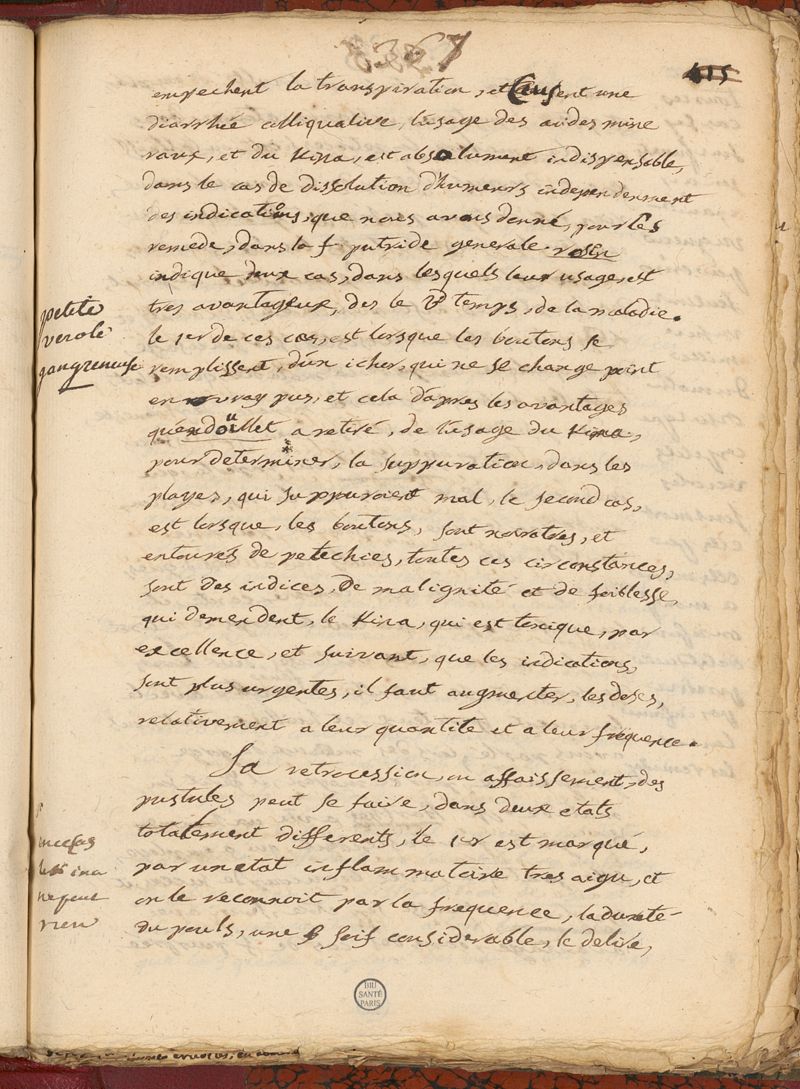 3367
415
empechent la transpiration, et causent une
diarrhée colliquative, lusage des acides mine
raux, et du Kina, est absolument indispensable,
dans le cas de dissolution d'humeurs independenment
des indications, que nous avons donné, pour les
remede, dans la f. putride generale. rosen
indique deux cas, dans lesquels leur usage, est
tres avantageux, des le temps, de la maladie.
le 1er de ces cas, est lorsque les boutons se
remplissent, d'un icher, qui ne se change point
en vray pus, et cela d'apres les avantages
a retiré, de l'usage du Kina,
pour determiner, la suppuration, dans les
playes, qui suppuroient mal, le second cas,
est lorsque, les boutons, sont noiratres, et
entourés de petechies, toutes ces circonstances,
sont des indices, de malignité et de foiblesse,
qui demendent, le Kina, qui est tonique, par
excellence, et suivant, que les indications,
sont plus urgentes, il faut augmenter, les doses,
relativement a leur quantite et a leur frequence.
La retrocession, ou affaissement, des
pustules peut se faire, dans deux etats
totalement differents, le 1er est marqué,
par un etat inflammatoire tres aigu, et
on le reconnoit par la frequence, la dureté
du pouls, une soif considerable, le delire,
petite
verole
gangreneuse
le kina
ne peut
rien
BIU
SANTÉ
PARIS